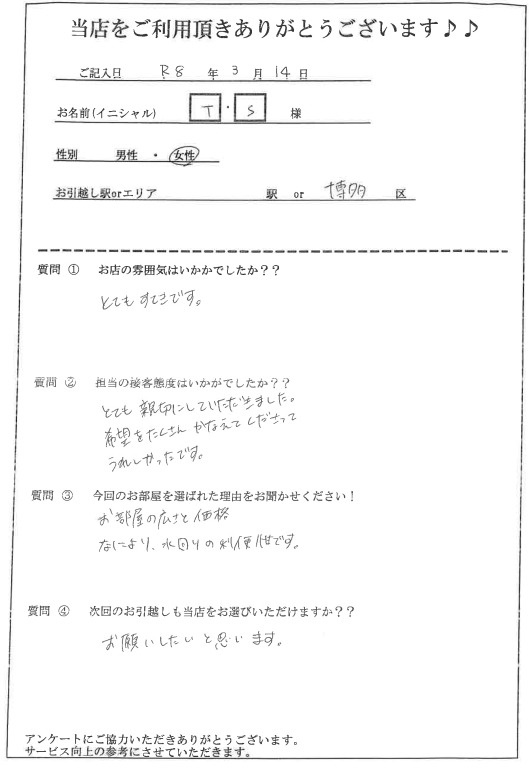 当店をご利用頂きありがとうございます♪♪
ご記入日 R8 年 3 月 14 日
お名前(イニシャル) T ・ S 様
性別 男性 ・ 女性
お引越し駅orエリア 駅 or 博多 区
質問 ① お店の雰囲気はいかかでしたか??
とても すてきです。
質問 ② 担当の接客態度はいかがでしたか??
とても 親切にしていただきました。
希望をたくさん かなえて くださって
うれしかったです。
質問 ③ 今回のお部屋を選ばれた理由をお聞かせください!
お部屋の広さと価格
なにより、水回りの利便性です。
質問 ④ 次回のお引越しも当店をお選びいただけますか??
お願いしたいと思います。
アンケートにご協力いただきありがとうございます。
サービス向上の参考にさせていただきます。